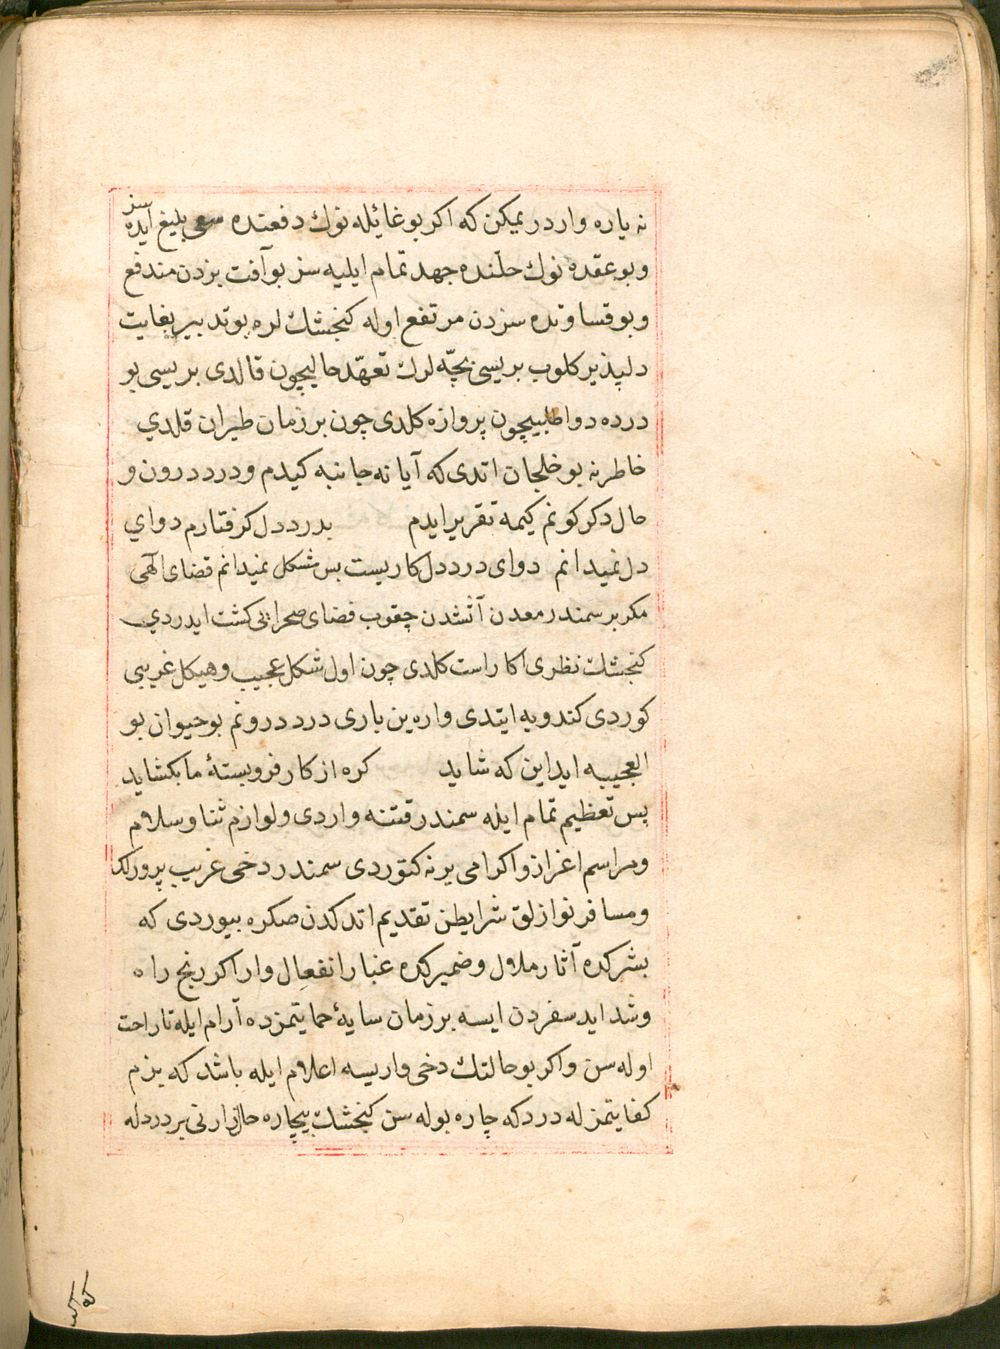 نه یاره واردر یمکن که اکر بو غائله نوك دفعنده سعی بلیغ ایده سز
وبو عقده نوك حلّنده جهد تمام ایلیه سز بو آفت بزدن مندفع
وبو قساوتده سزدن مرتفع اوله کنجشك لره بو تدبیر بغایت
دلپذیر کلوب بریسی بچّه لرك تعهّد حالیچون قالدی بریسی بو
درده دوا طلبیچون پروازه کلدی چون بر زمان طیران قلدي
خاطرنه بو خلجان اتدی که آیا نه جانبه کیدم ودرد درون و
حال دکر کونم کیمه تقریر ایدم بدرد دل کرفتارم دوای
دل نمیدانم دوای درد دل کاریست بس مشکل نمیدانم قضای الهی
مکر بر سمندر معدن آتشدن چقوب فضای صحرایی کشت ایدردي
کنجشك نظری اکا راست کلدی چون اول شکل عجیب وهیکل غریبی
کوردی کندویه ایتدی واره ین باری درد درونم بو حیوان بو
العجیبه ایداین که شاید کره از کار فروبستهٔ ما بکشاید
پس تعظیم تمام ایله سمندر قتنه واردی ولوازم ثنا وسلام
ومراسم اغزاز واکرامی یرنه کتوردی سمندر دخی غریب پرورلك
ومسافر نوازلق شرایطن تقدیم اتدکدن صکره بیوردی که
بشرکده آثار ملال وضمیرکده غبار انفعال وار اکر رنج راه
وشداید سفردن ایسه بر زمان سایهٔ حمایتمزده آرام ایله تا راحت
اوله سن واکر بو حالتك دخی واریسه اعلام ایله باشد که بزم
کفایتمزله دردکه چاره بوله سن کنجشك بیچاره حال زارنی بر درد له